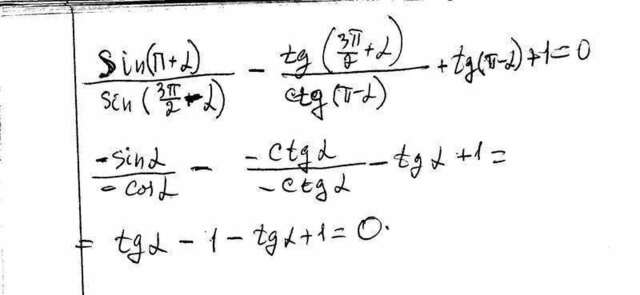 sin(π+α)/sin(3π/2-α) - tg(3π/2+α)/ctg(π-α) + tg(π-α)+1=0
-sinα/-cosα - -ctgα/-ctgα - tgα+1=
= tgα - 1 - tgα+1=0.